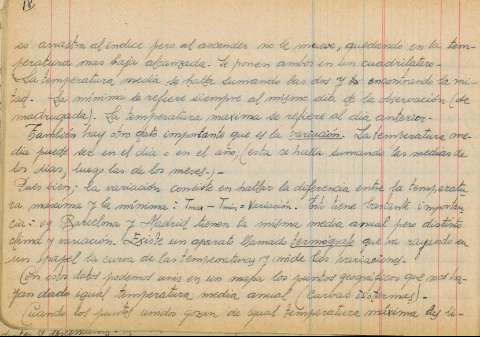 18
es arrastra al endice pero al ascender no le mueve, quedando en la tem-
peratura mas baja alcanzada. Se ponen ambos en un cuadrilatero.-
La temperatura media se halla sumando las dos y encontrando la mi-
tad. La minima se refiere siempre al mismo dia de la observación (de
madrugada). La temperatura maxima se refiere al dia anterior.
Tambien hay otro dato importante que es la variación. La temperatura me-
dia puede ser en el dia o en el año, (esta se halla sumando las medias de
los dias, luego las de los meses.)-
Pues bien; la variación consiste en hallar la diferencia entre la temperatu
ra maxima y la minima: Tmax - Tmin = Variación. Esto tiene bastante importan-
cia: vg Barcelona y Madrid tienen la misma media anual pero distinto
clima y variación. Existe un aparato llamado termógrafo que va rayando en
un papel la curva de las temperaturas y mide las variaciones.
Con estos datos podemos unir en un mapa los puntos geográficos que nos ha-
yan dado igual temperatura media anual (Curvas isotermas)-
Cuando los puntos unidos gozan de igual temperatura máxima